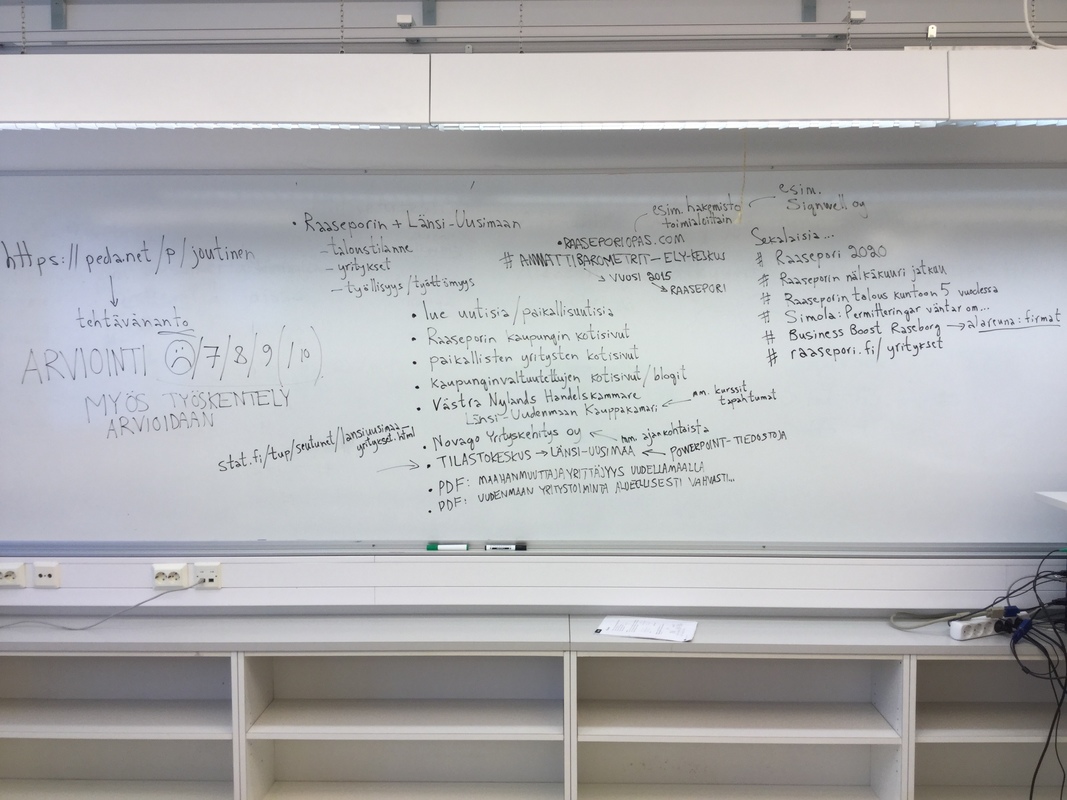 https://peda.net/p/joutinen
↓
tehtävänanto
ARVIOINTI ☹/7/8/9(/10)
MYÖS TYÖSKENTELY
ARVIOIDAAN
• Raaseporin + Länsi-Uusimaan
- taloustilanne
- yritykset
- työllisyys/työttömyys
esim. hakemisto
toimialoittain
esim.
Signwell oy
• RAASEPORIOPAS.COM
# AMMATTIBAROMETRIT - ELY-KESKUS
→ VUOSI 2015
→ RAASEPORI
• lue uutisia/paikallisuutisia
• Raaseporin kaupungin kotisivut
• paikallisten yritysten kotisivut
• kaupunginvaltuutettujen kotisivut/blogit
• Västra Nylands Handelskammare
Länsi-Uudenmaan Kauppakamari ← mm. kurssit
tapahtumat
• Novago Yrityskehitys oy ← mm. ajankohtaista
stat.fi/tup/seutunet/lansiuusimaa_
yritykset.html
→ • TILASTOKESKUS → LÄNSI-UUSIMAA ← POWERPOINT-TIEDOSTOJA
• PDF: MAAHANMUUTTAJAYRITTÄJYYS UUDELLAMAALLA
• PDF: UUDENMAAN YRITYSTOIMINTA ALUEELLISESTI VAHVASTI...
•
Sekalaisia...
# Raasepori 2020
# Raaseporin nälkäkuuri jatkuu
# Raaseporin talous kuntoon 5 vuodessa
# Simola: Permitteringar väntar om...
# Business Boost Raseborg → alareuna: firmat
# raasepori.fi/yritykset